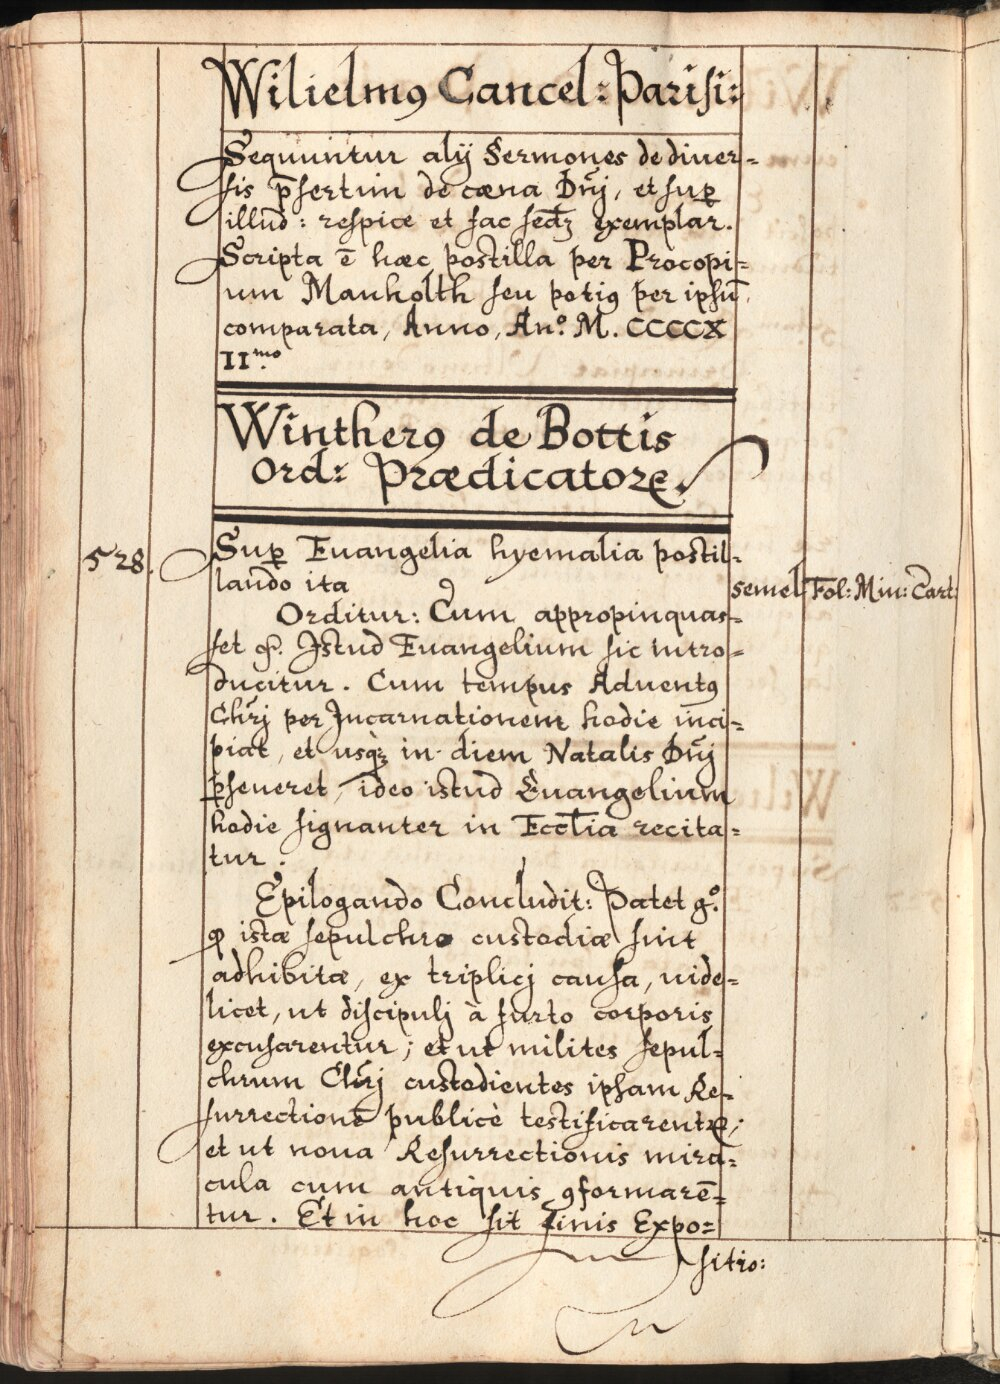 Wilielmꝰ Cancel: Parisi:
Sequuntur alij Sermones de diuer=
sis p̄sertim de cæna Dn̄j, et suꝑ
illud : respice et fac secdꝫ exemplar.
Scripta ē hæc postilla per Procopi=
um Manholth seu potiꝰ per ipsū
comparata, Anno, Anº. M. CCCCX
II.mo
Wintherꝰ de Bottis
Ord: Prædicatorꝝ.
528.
Suꝑ Euangelia hyemalia postil=
lando ita
semel
Fol: Min: Cart:
Orditur: Cum appropinquas=
set &. Istud Euangelium sic intro=
ducitur. Cum tempus Aduentꝰ
Chrj per Incarnationem hodie inci=
piat, et usqꝫ in diem Natalis Dn̄j
ꝑseueret, ideo istud Euangelium
hodie signanter in Eccl̄ia recita=
tur.
Epilogando Concludit: Patet gº.
ꝙ istæ sepulchro custodiæ sint
adhibitæ, ex triplicj causa, uide=
licet, ut discipulj à furto corporis
excusarentur; et ut milites sepul=
chrum Chrj custodientes ipsam Re=
surrectionē publicè testificarentꝝ;
et ut noua Resurrectionis mira=
cula cum antiquis ꝯformarē=
tur. Et in hoc sit finis Expo=
sitio: